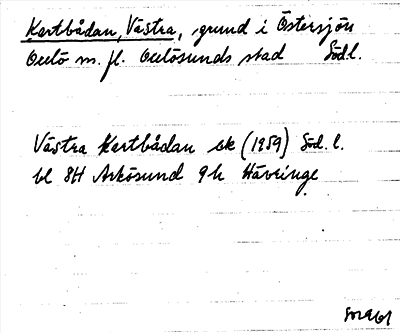 Kartbådan, Västra, grund i Östersjön
Oxelö m. fl. Oxelösunds stad Söd.l.
Västra Kartbådan sk (1959) Söd.l.
bl 8H Arkösund 9h Hävringe